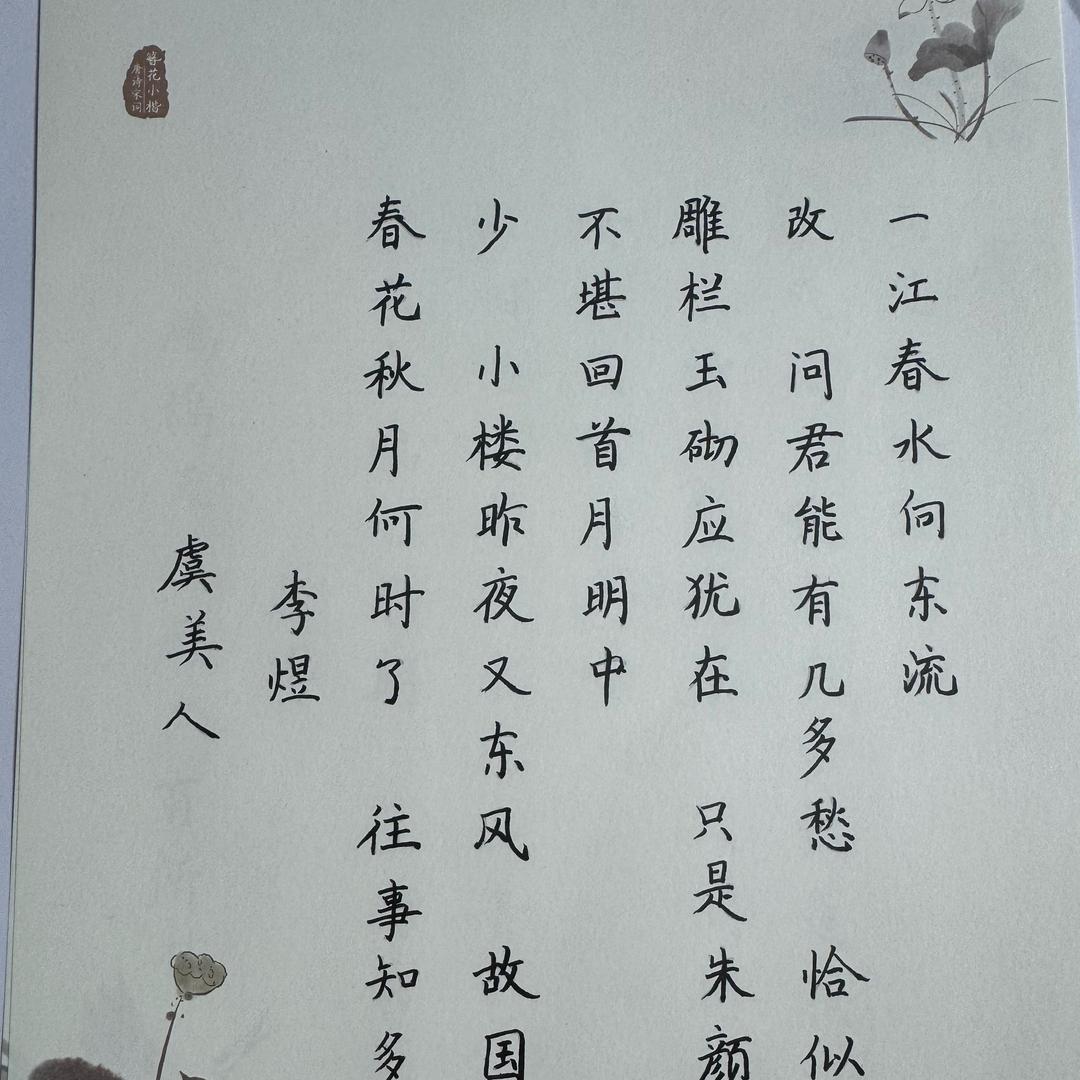 簪花小楷
唐诗宋词
虞美人
李煜
春花秋月何时了 往事知多
少 小楼昨夜又东风 故国
不堪回首月明中
雕栏玉砌应犹在 只是朱颜
改 问君能有几多愁 恰似
一江春水向东流